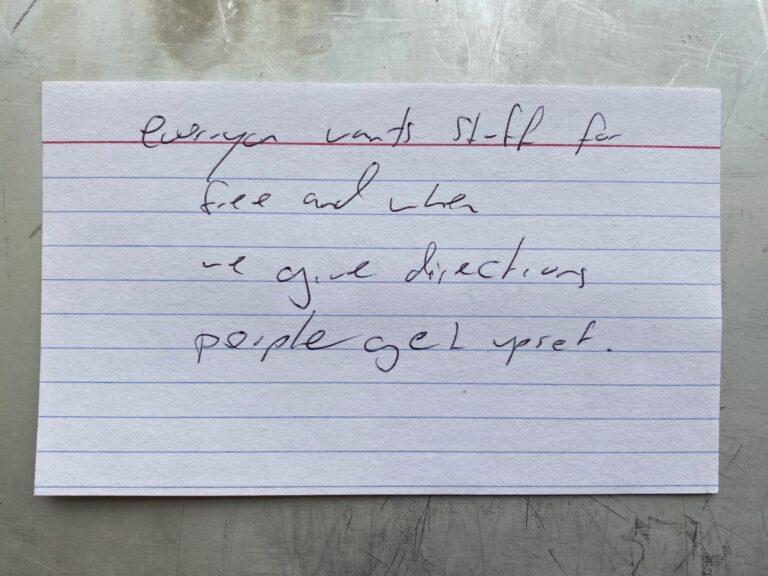 everyon wants stuff for
free and when
we give directions
people get upset.